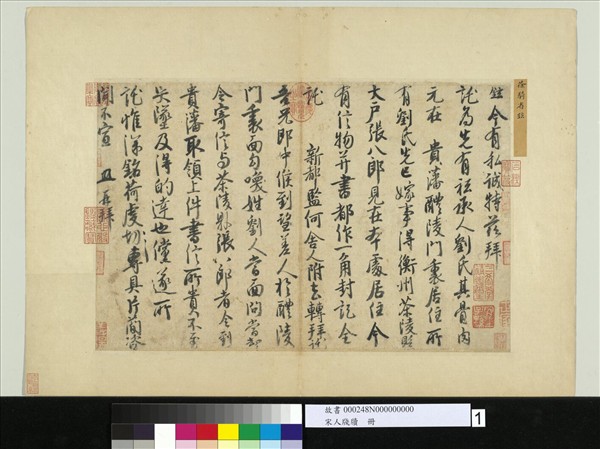 鉉今有私誠特茲拜
託為先有祗承人劉氏其骨肉
元在 貴藩醴陵門裏居住所
有劉氏先已嫁事得衡州茶陵縣
大戶張八郎見在本處居住今
有信物并書都作一角封記全
託 新都監何舍人附去轉拜託
吾兄郎中候到望差人於醴陵
門裏面勾喚姓劉人當面問當却
令寄信與茶陵縣張八郎者令到
貴藩取領上件書信所貴不至
失墜及得的達也儻遂所
託惟深銘荷虔切專具片簡洛
聞不宣 再拜
故書 000248N000000000
宋人牋牘 冊
1